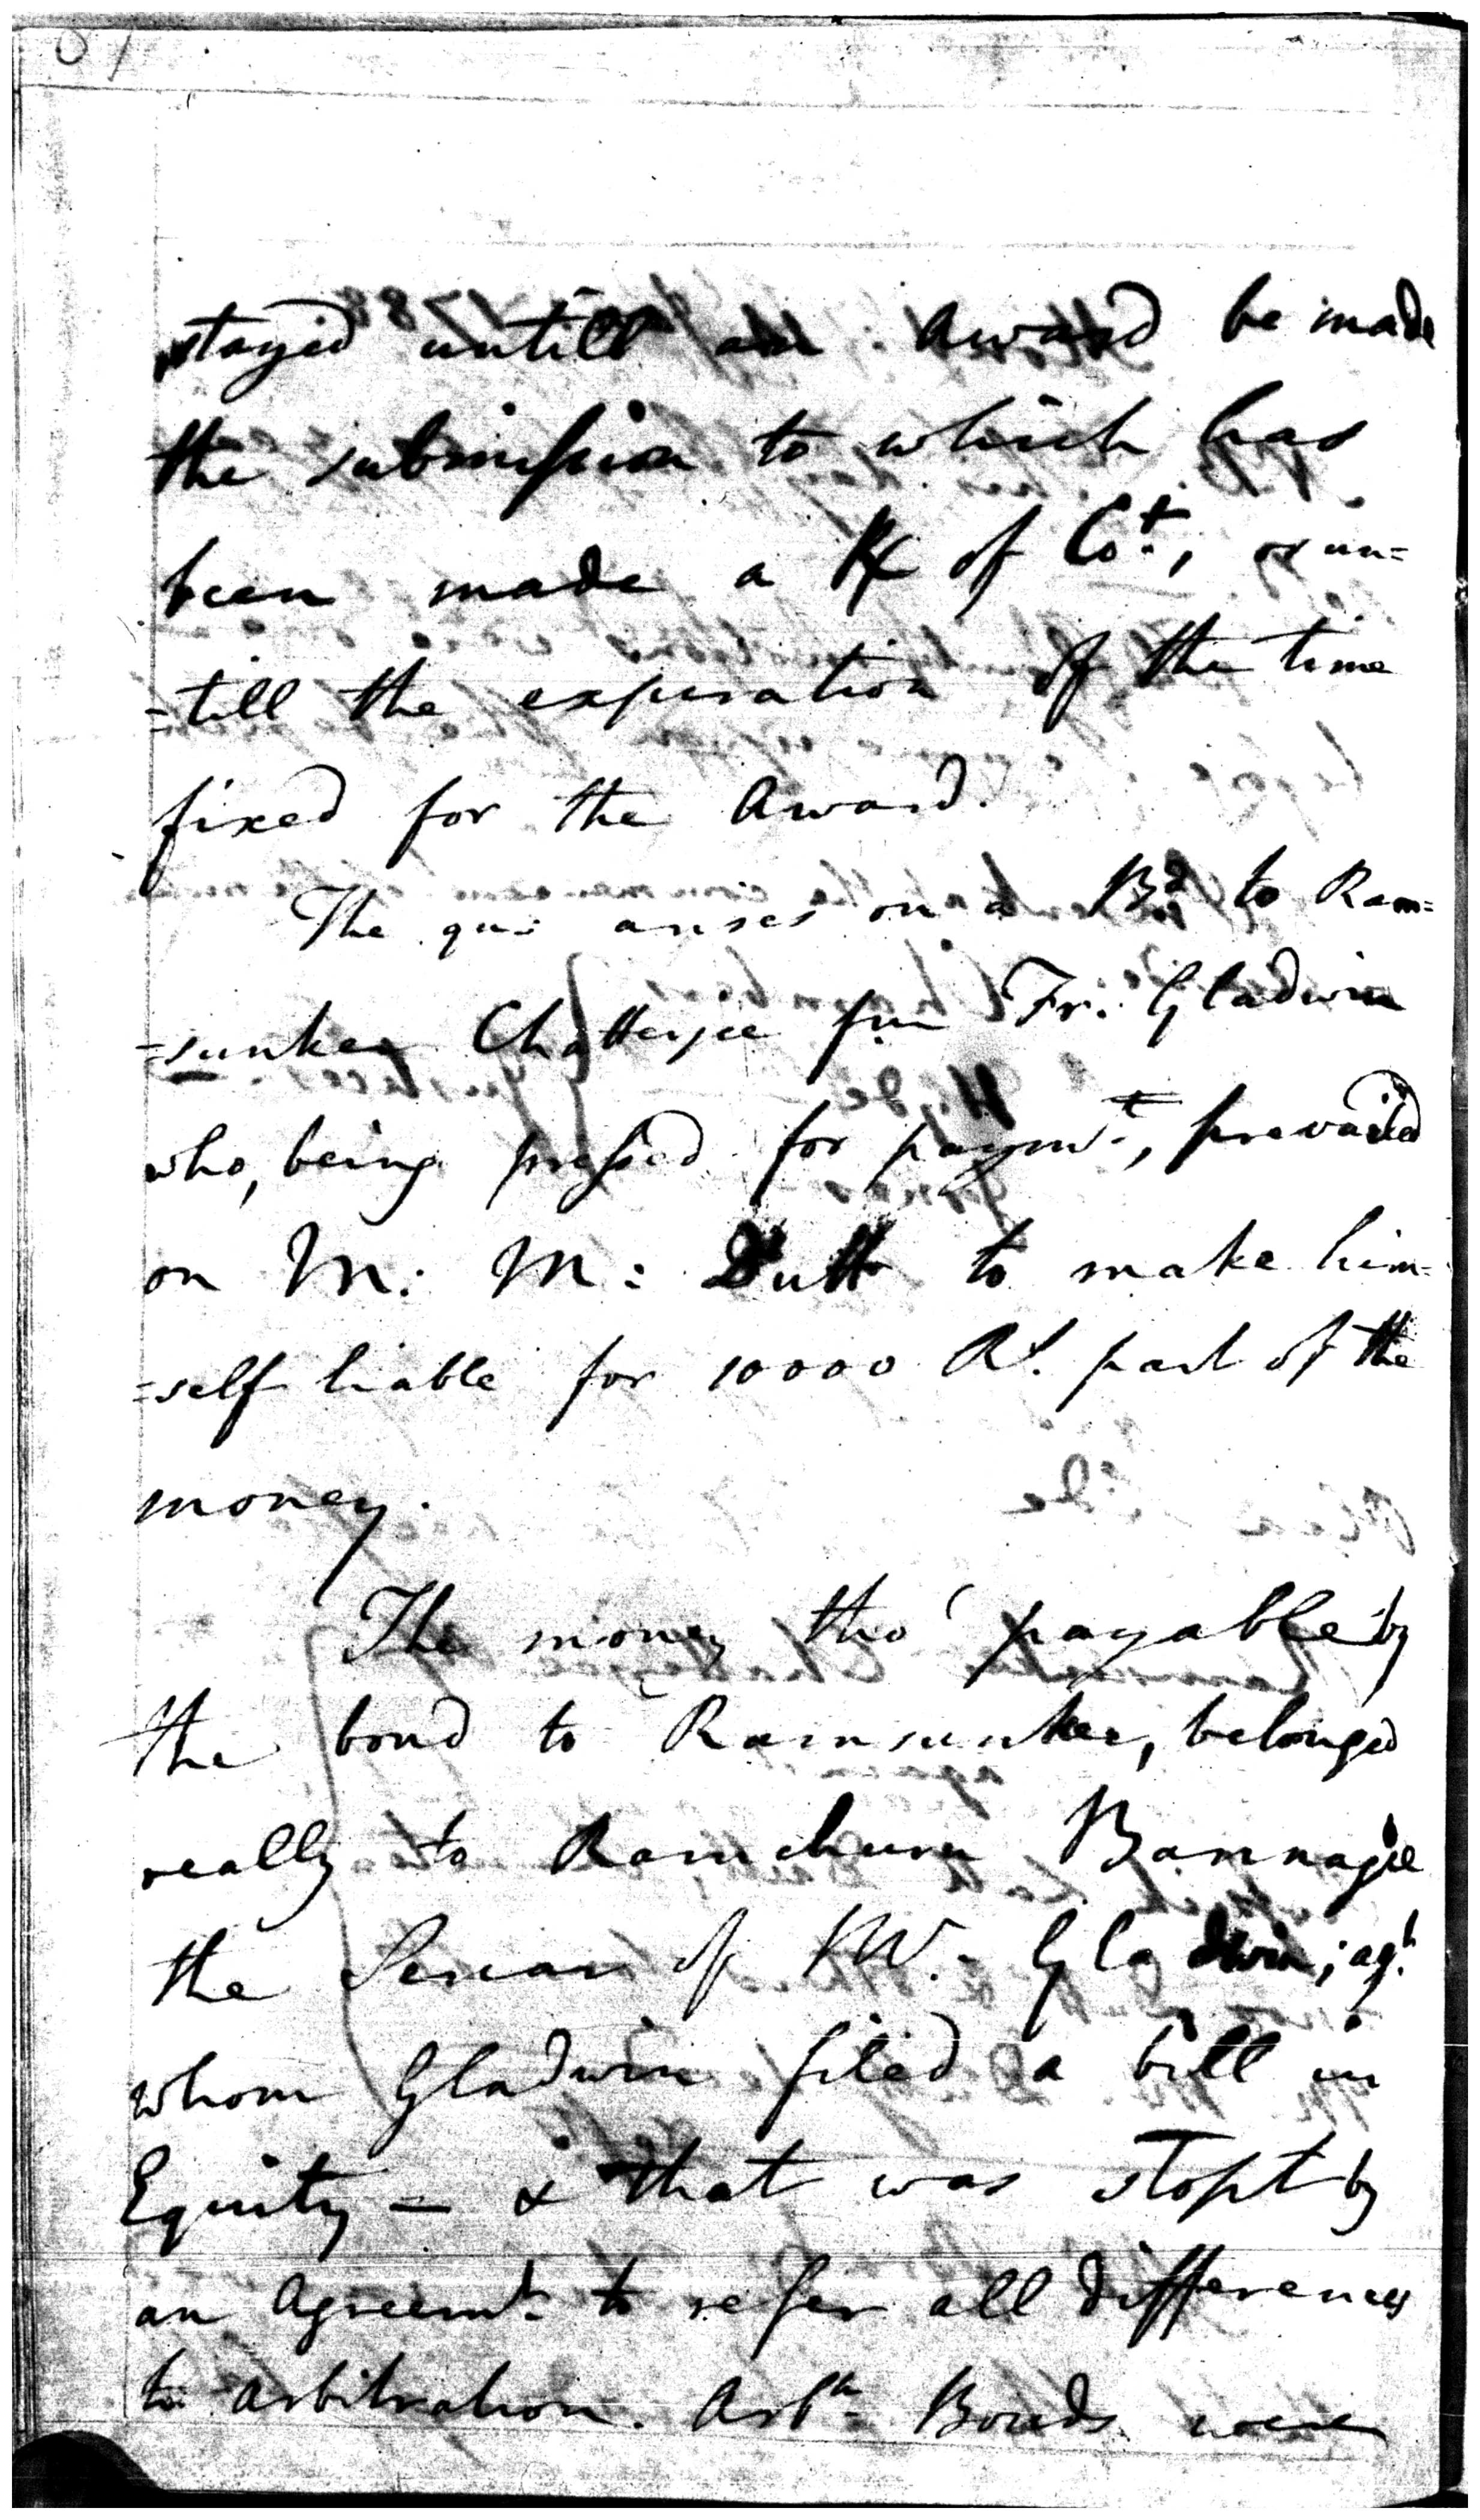 stayed untill an Award be made
the submission to which has
been made a R of Cot., or un=
=till the expiration of the time
fixed for the Award.
The qu: arises on a Bd. to Ram=
=sunker Chatterjee fm Fr. Gladwin
who, being pressed for paymt., prevailed
on M: M: Dutt to make him=
=self liable for 10000 Rs. part of the
money.
The money tho' payable by
the bond to Ramsunker, belonged
really to Ramchurn Bannagee
the Sercar of Mr. Gladwin; agt.
whom Gladwin filed a bill in
Equity – & that was stopt by
an Agreemt. to refer all differences
to arbitration. Arbn. Bonds were